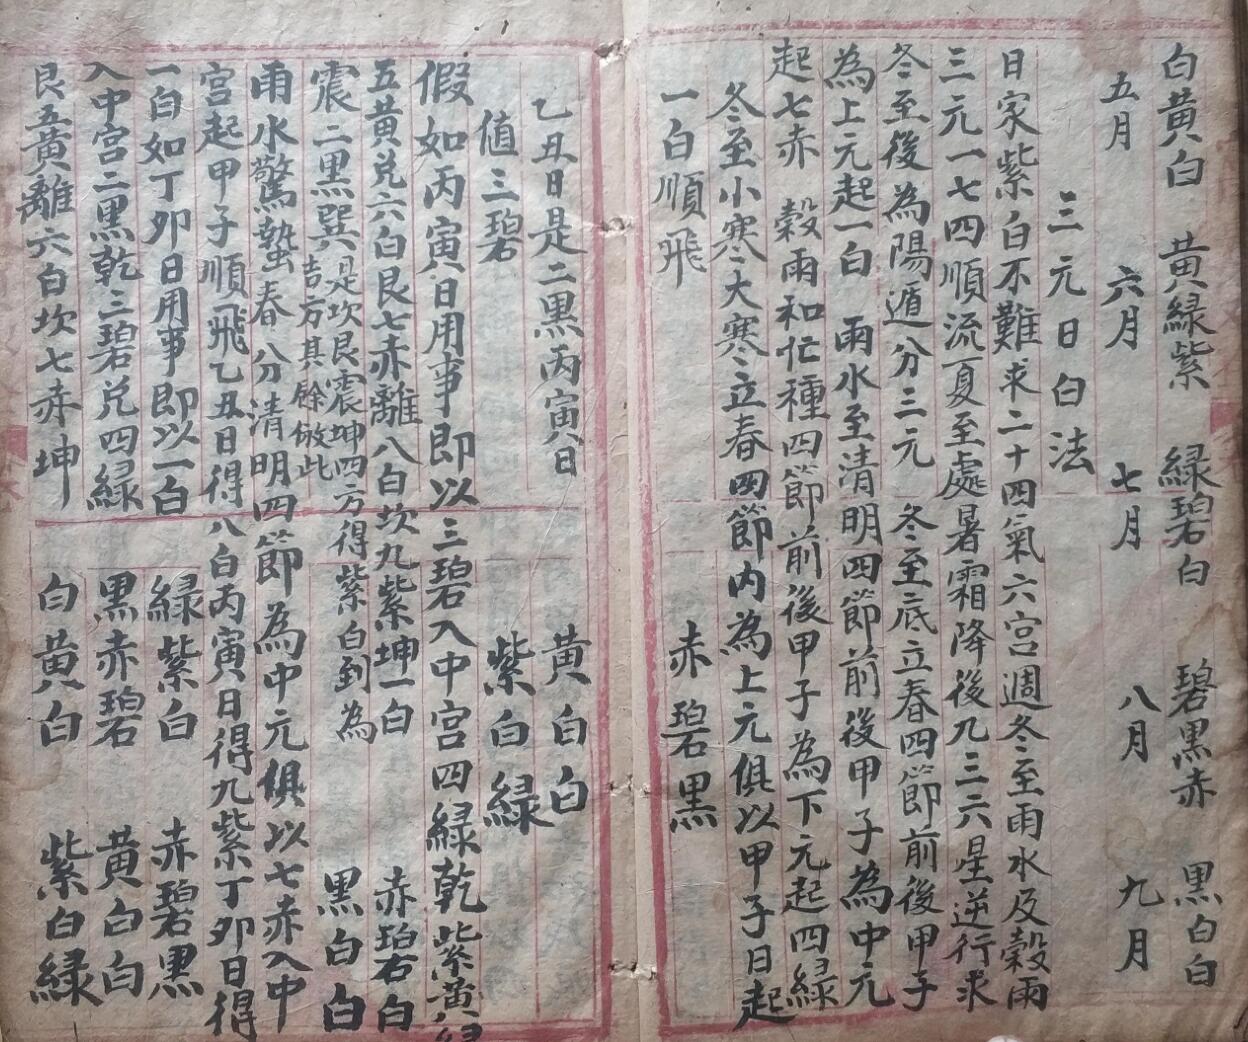 白黄白　黄綠紫　綠碧白　碧黒赤　黒白白
五月　六月　七月　八月　九月
三元日白法
日家紫白不難求二十四氣六宮週冬至雨水及穀雨
三元一七四順流夏至處暑霜降後九三六星逆行求
冬至後為陽遁分三元　冬至底立春四節前後甲子
為上元起一白　雨水至清明四節前後甲子為中元
起七赤　穀雨和忙種四節前後甲子為下元起四綠
冬至小寒大寒立春四節内為上元俱以甲子日起
一白順飛　赤碧黒
乙丑日是二黒丙寅日　黄白白
值三碧　紫白綠
假如丙寅日用事即以三碧入中宮四綠乾紫黄綠
五黄兌六白艮七赤離八白坎九紫坤一白　赤碧白
震二黒巽是坎艮震坤四方得紫白到為吉方其餘倣此　黒白白
雨水驚蟄春分清明四節為中元俱以七赤入中
宮起甲子順飛乙丑日得八白丙寅日得九紫丁夘日得
一白如丁夘日用事即以一白　綠紫白　赤碧黒
入中宮二黒乾三碧兌四綠　黒赤碧　黄白白
艮五黄離六白坎七赤坤　白黄白　紫白綠